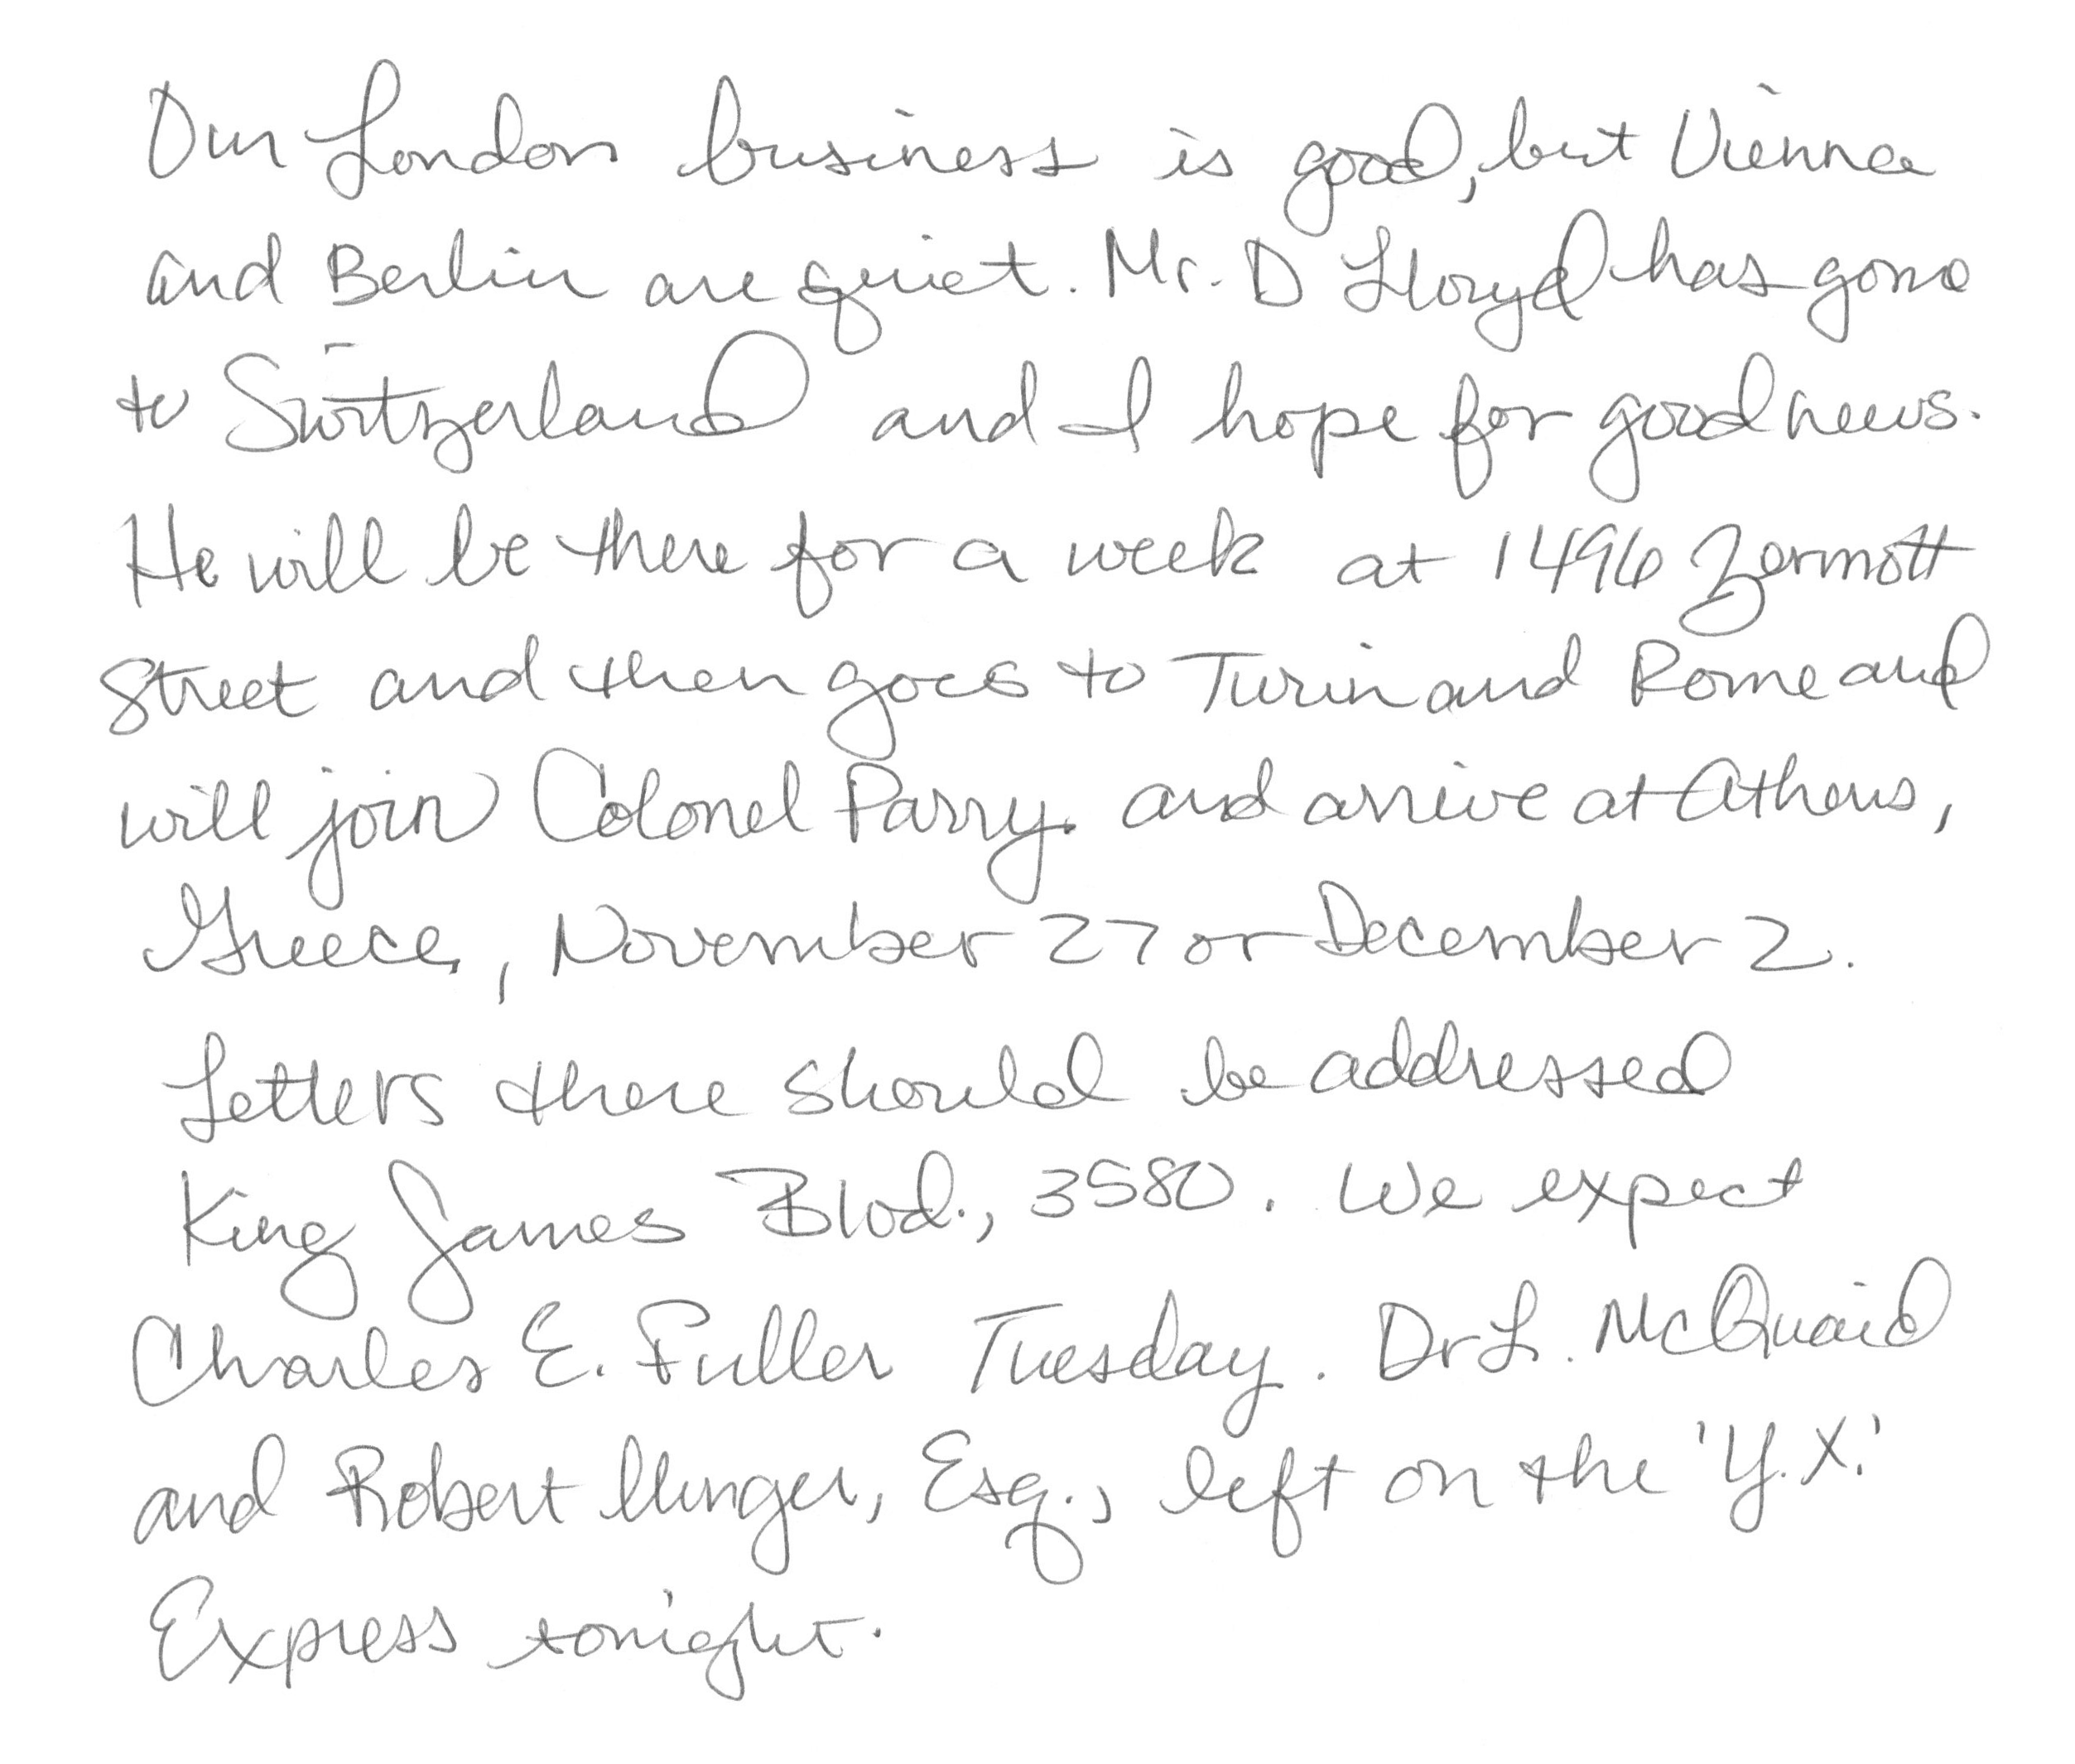 Our London business is good, but Vienna
and Berlin are quiet. Mr. D Lloyd has gone
to Switzerland and I hope for good news.
He will be there for a week at 1496 Zermott
Street and then goes to Turin and Rome and
will join Colonel Parry and arrive at Athens,
Greece, November 27 or December 2.
Letters there should be addressed
King James Blvd., 3580. We expect
Charles E. Fuller Tuesday. Dr L. McQuaid
and Robert Unger, Esq., left on the 'Y.X.'
Express tonight.